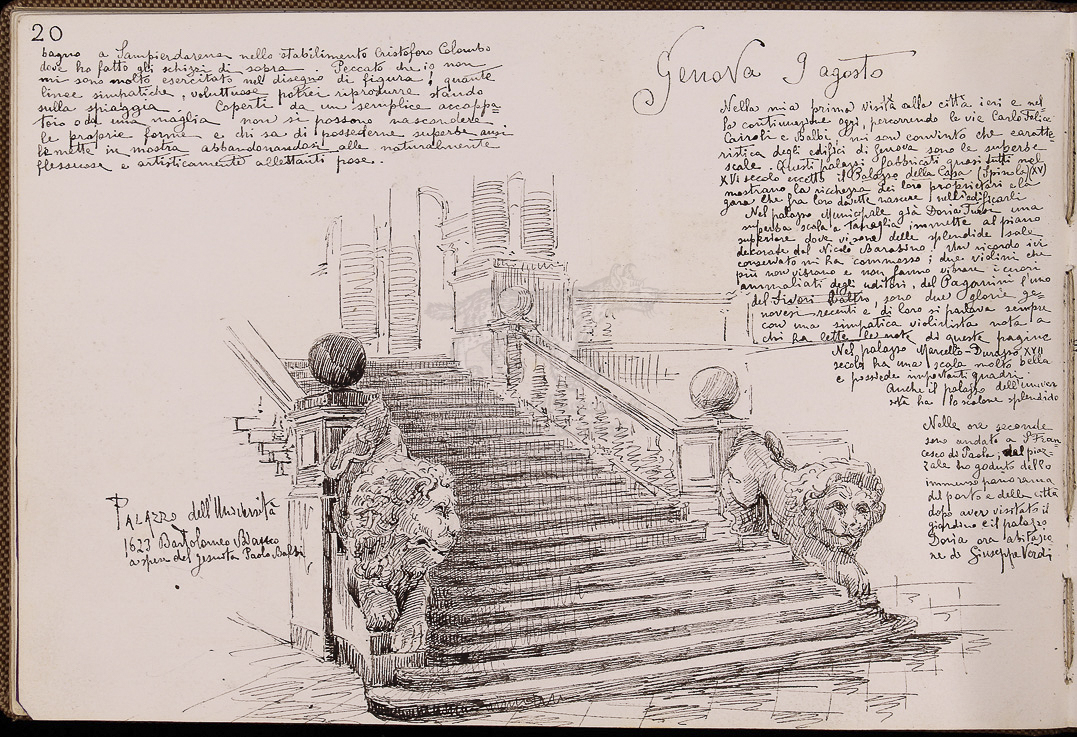 20
bagno a Sampierdarena nello stabilimento Cristoforo Colombo
dove ho fatto gli schizzi di sopra. Peccato che io non
mi sono molto esercitato nel disegno di figura! quante
linee simpatiche, voluttuose potrei riprodurre stando
sulla spiaggia. Coperti da un semplice accappa=
toio o da una maglia non si possono nascondere
le proprie forme e chi sa di possederne superbe anzi
le mette in mostra abbandonandosi alle naturalmente
flessuose e artisticamente allettanti pose..
Genova 9 agosto
Nella mia prima visita alla città ieri e nel
la continuazione oggi, percorrendo le vie Carlo Felice
Cairoli e Balbi, mi son convinto che caratte=
ristica degli edifici di Genova sono le superbe
scale. Questi palazzi fabbricati quasi tutti nel
XVI secolo eccetto il Palazzo della Casa (Spinola) (XV)
mostrano la ricchezza dei loro proprietari e la
gara che fra loro dovette nascere nell'edificarli
Nel palazzo Municipale già Doria Tursi una
superba scala a tanaglia immette al piano
superiore dove vi sono delle splendide sale
decorate dal Nicolò Barabino. Un ricordo ivi
conservato mi ha commosso; due violini che
più non vibrano e non fanno vibrare i cuori
ammaliati degli uditori, del Paganini l'uno
del Sivori l'altro, sono due glorie ge=
novesi recenti e di loro si parlava sempre
con una simpatica violinista nota a
chi ha lette le note di queste pagine
Nel palazzo Marcello-Durazzo XVII
secolo ha una scala molto bella
e possiede importanti quadri.
Anche il palazzo dell'univer
sità ha lo scalone splendido
Nelle ore seconde
sono andato a S. Fran
cesco di Paola; dal piaz=
zale ho goduto dello
immenso panorama
del porto e della città
dopo aver visitato il
giardino e il palazzo
Doria ora abitazio
ne di Giuseppe Verdi
Palazzo dell'Università
1623 Bartolomeo Bianco
a spese del gesuita Paolo Balbi